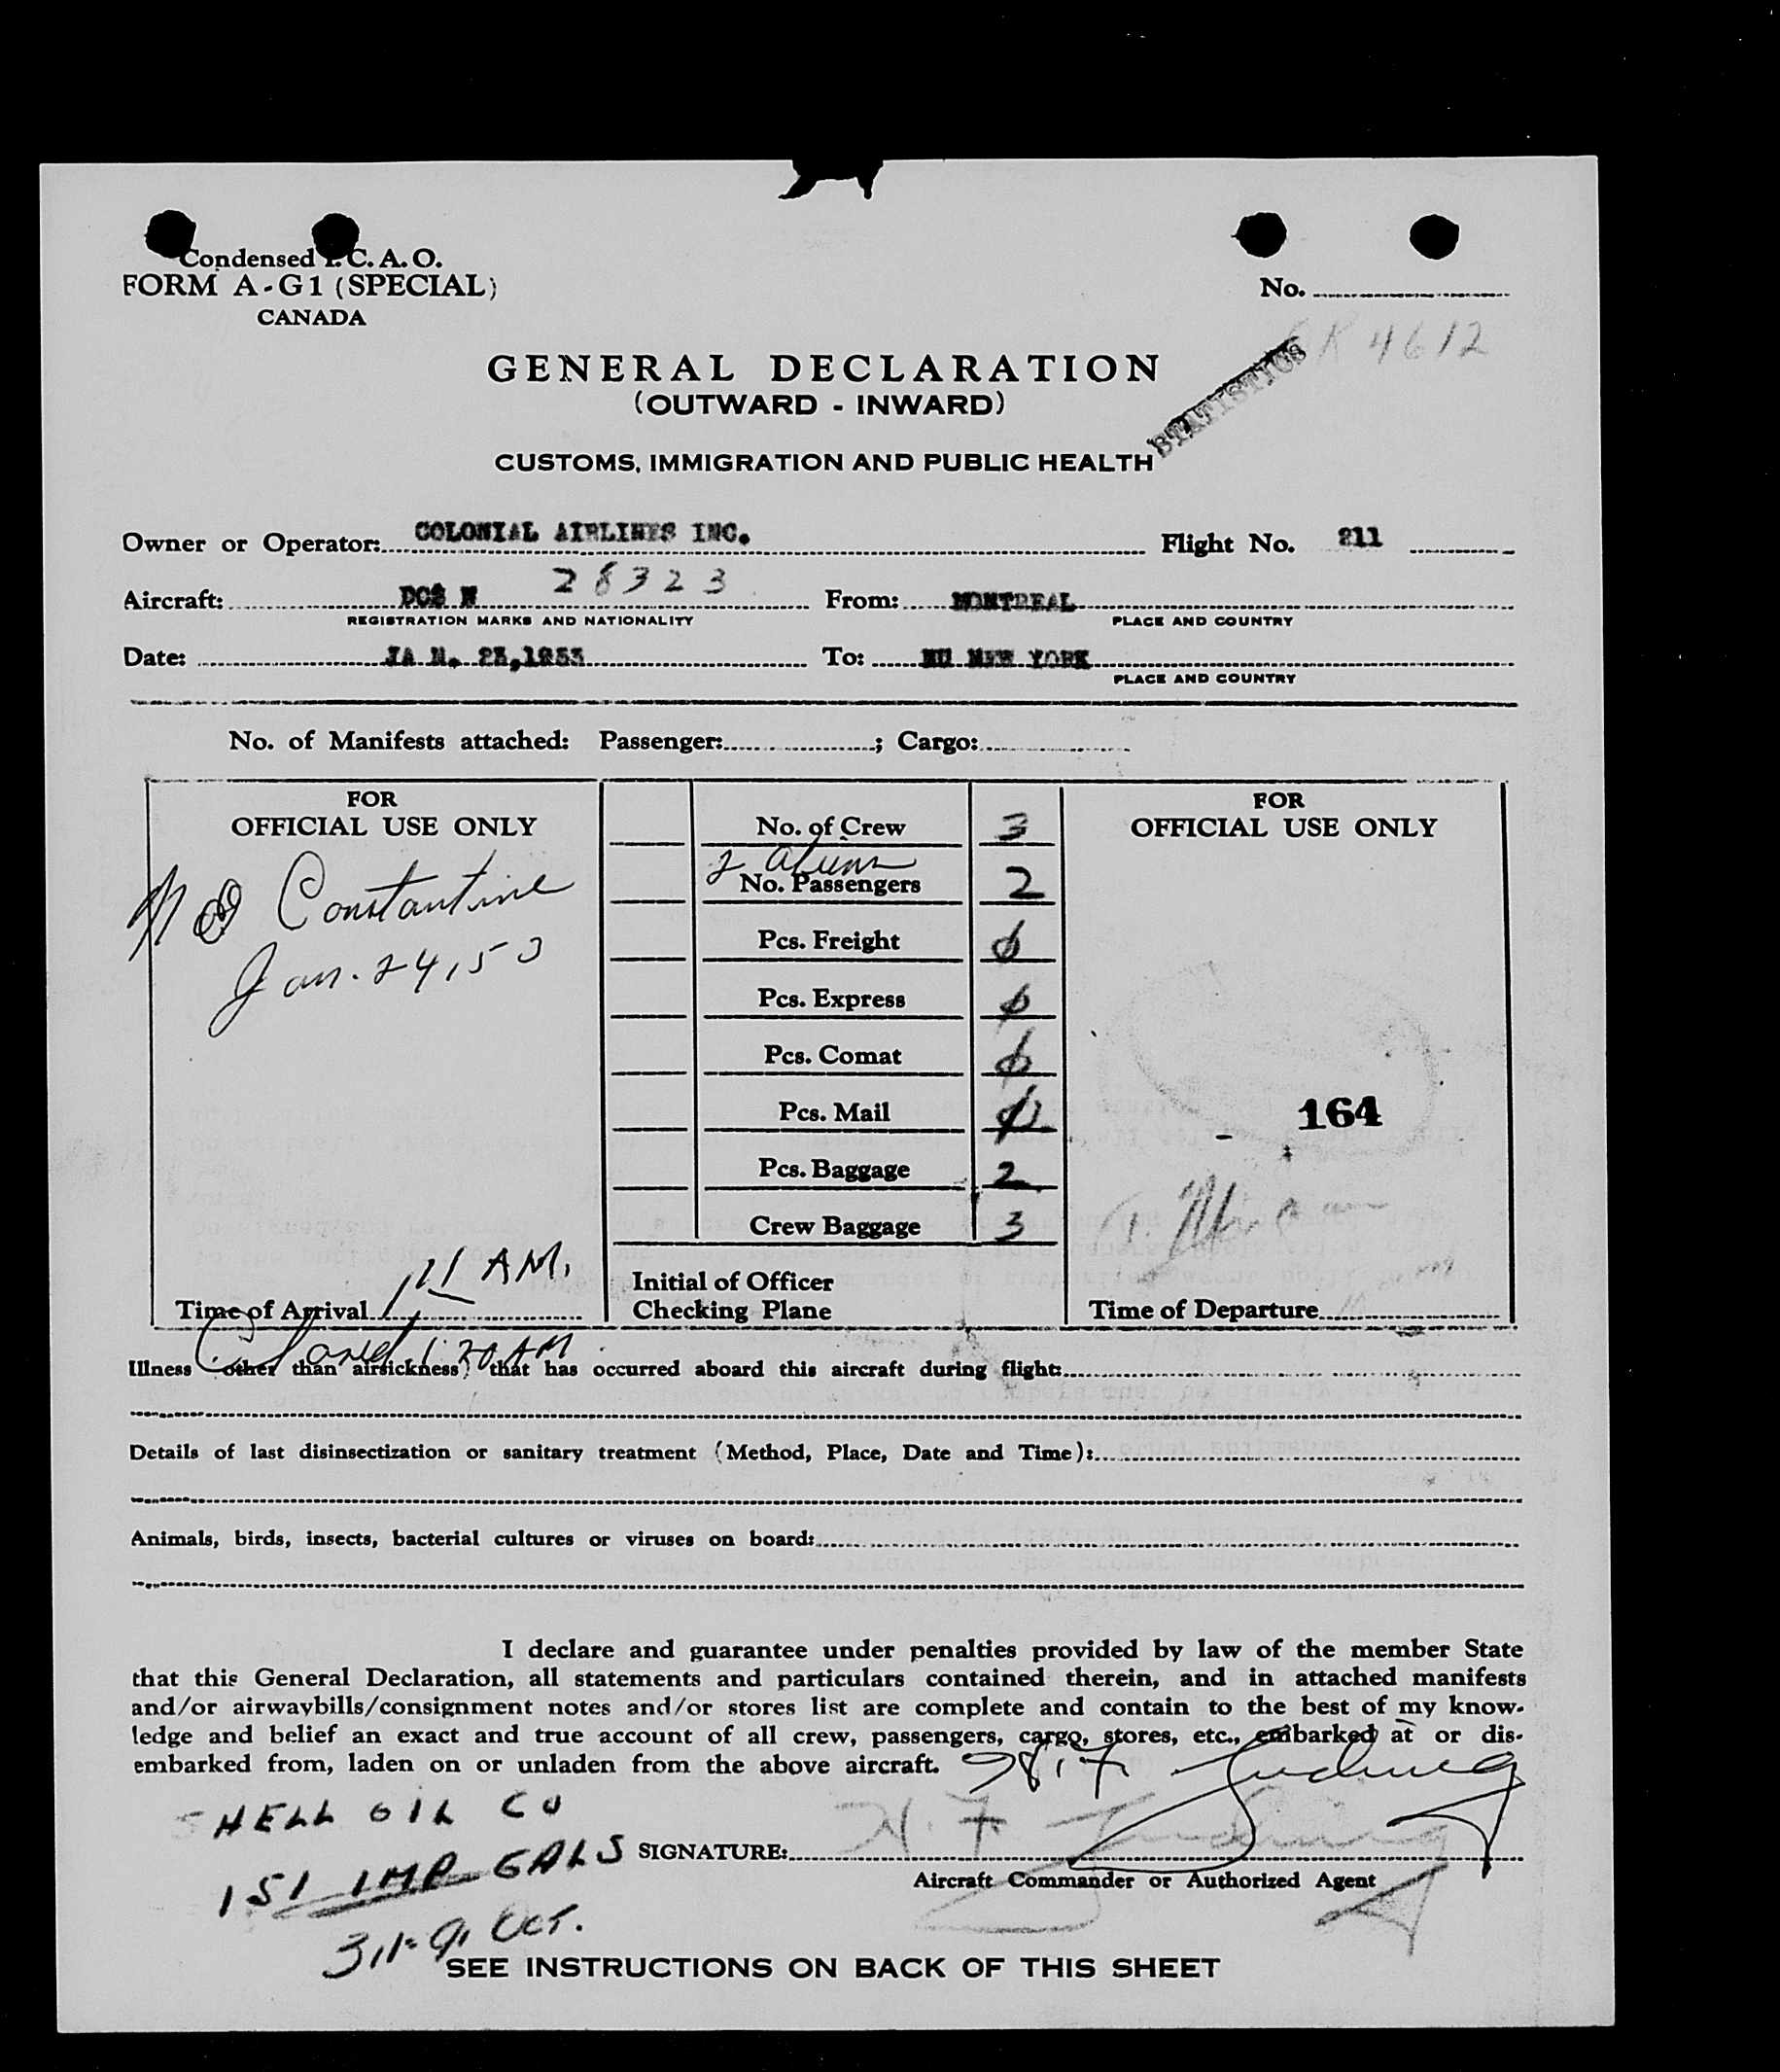 Condensed I. C. A. O.
FORM A-G1 (SPECIAL)
CANADA
No.
4612
STATISTICS
GENERAL DECLARATION
(OUTWARD - INWARD)
CUSTOMS, IMMIGRATION AND PUBLIC HEALTH
Owner or Operator: COLONIAL AIRLINES INC. Flight No. 211
Aircraft: DC3 N 28323 From: MONTREAL
REGISTRATION MARKS AND NATIONALITY PLACE AND COUNTRY
Date: JA N. 23,1953 To: NEW YORK
PLACE AND COUNTRY
No. of Manifests attached: Passenger: ; Cargo:
FOR
OFFICIAL USE ONLY
Constantine
Jan. 24, 53
Time of Arrival AM.
1:20 AM
No. of Crew 3
2 Aliens
No. Passengers 2
Pcs. Freight 0
Pcs. Express 0
Pcs. Comat 0
Pcs. Mail 0
Pcs. Baggage 2
Crew Baggage 3
Initial of Officer
Checking Plane
FOR
OFFICIAL USE ONLY
164
Time of Departure
Illness (other than airsickness) that has occurred aboard this aircraft during flight:
Details of last disinsectization or sanitary treatment (Method, Place, Date and Time):
Animals, birds, insects, bacterial cultures or viruses on board:
I declare and guarantee under penalties provided by law of the member State
that this General Declaration, all statements and particulars contained therein, and in attached manifests
and/or airwaybills/consignment notes and/or stores list are complete and contain to the best of my know-
ledge and belief an exact and true account of all crew, passengers, cargo, stores, etc., embarked at or dis-
embarked from, laden on or unladen from the above aircraft.
SHELL OIL CO
151 IMP GALS
OCT.
SIGNATURE:
Aircraft Commander or Authorized Agent
SEE INSTRUCTIONS ON BACK OF THIS SHEET